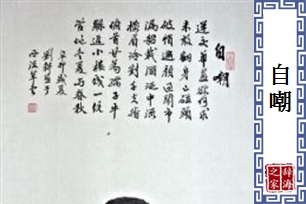 自嘲
运交华盖欲何求
未敢翻身已碰头
破帽遮颜过闹市
漏船载酒泛中流
横眉冷对千夫指
俯首甘为孺子牛
躲进小楼成一统
管他冬夏与春秋
自嘲
辞海之家